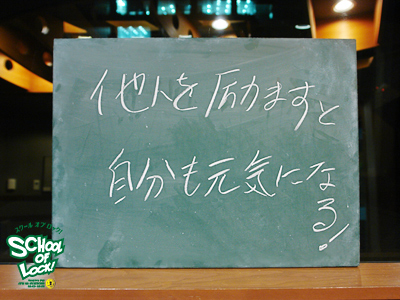 他人を励ますと
自分も元気になる!
スクール オブ ロック!
SCHOOL
OF
LOCK!